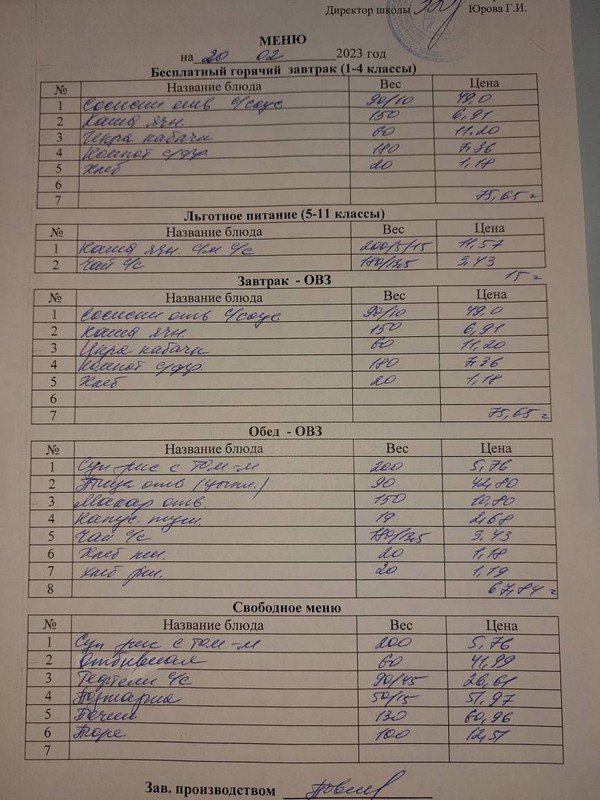 Директор школы Юрова Г.И.
МЕНЮ
на 20 02 2023 год
Бесплатный горячий завтрак (1-4 классы)
№ Название блюда Вес Цена
1 Сосиски отв с/соус 90/10 49,0
2 Каша ячн. 150 6,91
3 Икра кабачк 60 11,20
4 Компот с/фр 180 7,36
5 Хлеб 20 1,18
6
7 75,65 г
Льготное питание (5-11 классы)
№ Название блюда Вес Цена
1 Каша ячн. с/м с/с 200/5/15 11,57
2 Чай с/с 180/12,5 3,43
15 г
Завтрак - ОВЗ
№ Название блюда Вес Цена
1 Сосиски отв с/соус 90/10 49,0
2 Каша ячн. 150 6,91
3 Икра кабачк 60 11,20
4 Компот с/фр 180 7,36
5 Хлеб 20 1,18
6
7 75,65 г
Обед - ОВЗ
№ Название блюда Вес Цена
1 Суп рис с том-м 200 5,76
2 Птица отв (цыпл.) 90 42,80
3 Макар отв. 150 10,80
4 Капус туш. 19 2,68
5 Чай с/с 180/12,5 3,43
6 Хлеб пш. 20 1,18
7 хлеб рж. 20 1,19
8 67,84 г
Свободное меню
№ Название блюда Вес Цена
1 Суп рис с том-м 200 5,76
2 Отбивная 60 41,99
3 Тефтели с/с 90/45 26,61
4 Поджарка 50/15 51,97
5 Печень 130 60,96
6 Пюре 100 12,51
7
Зав. производством